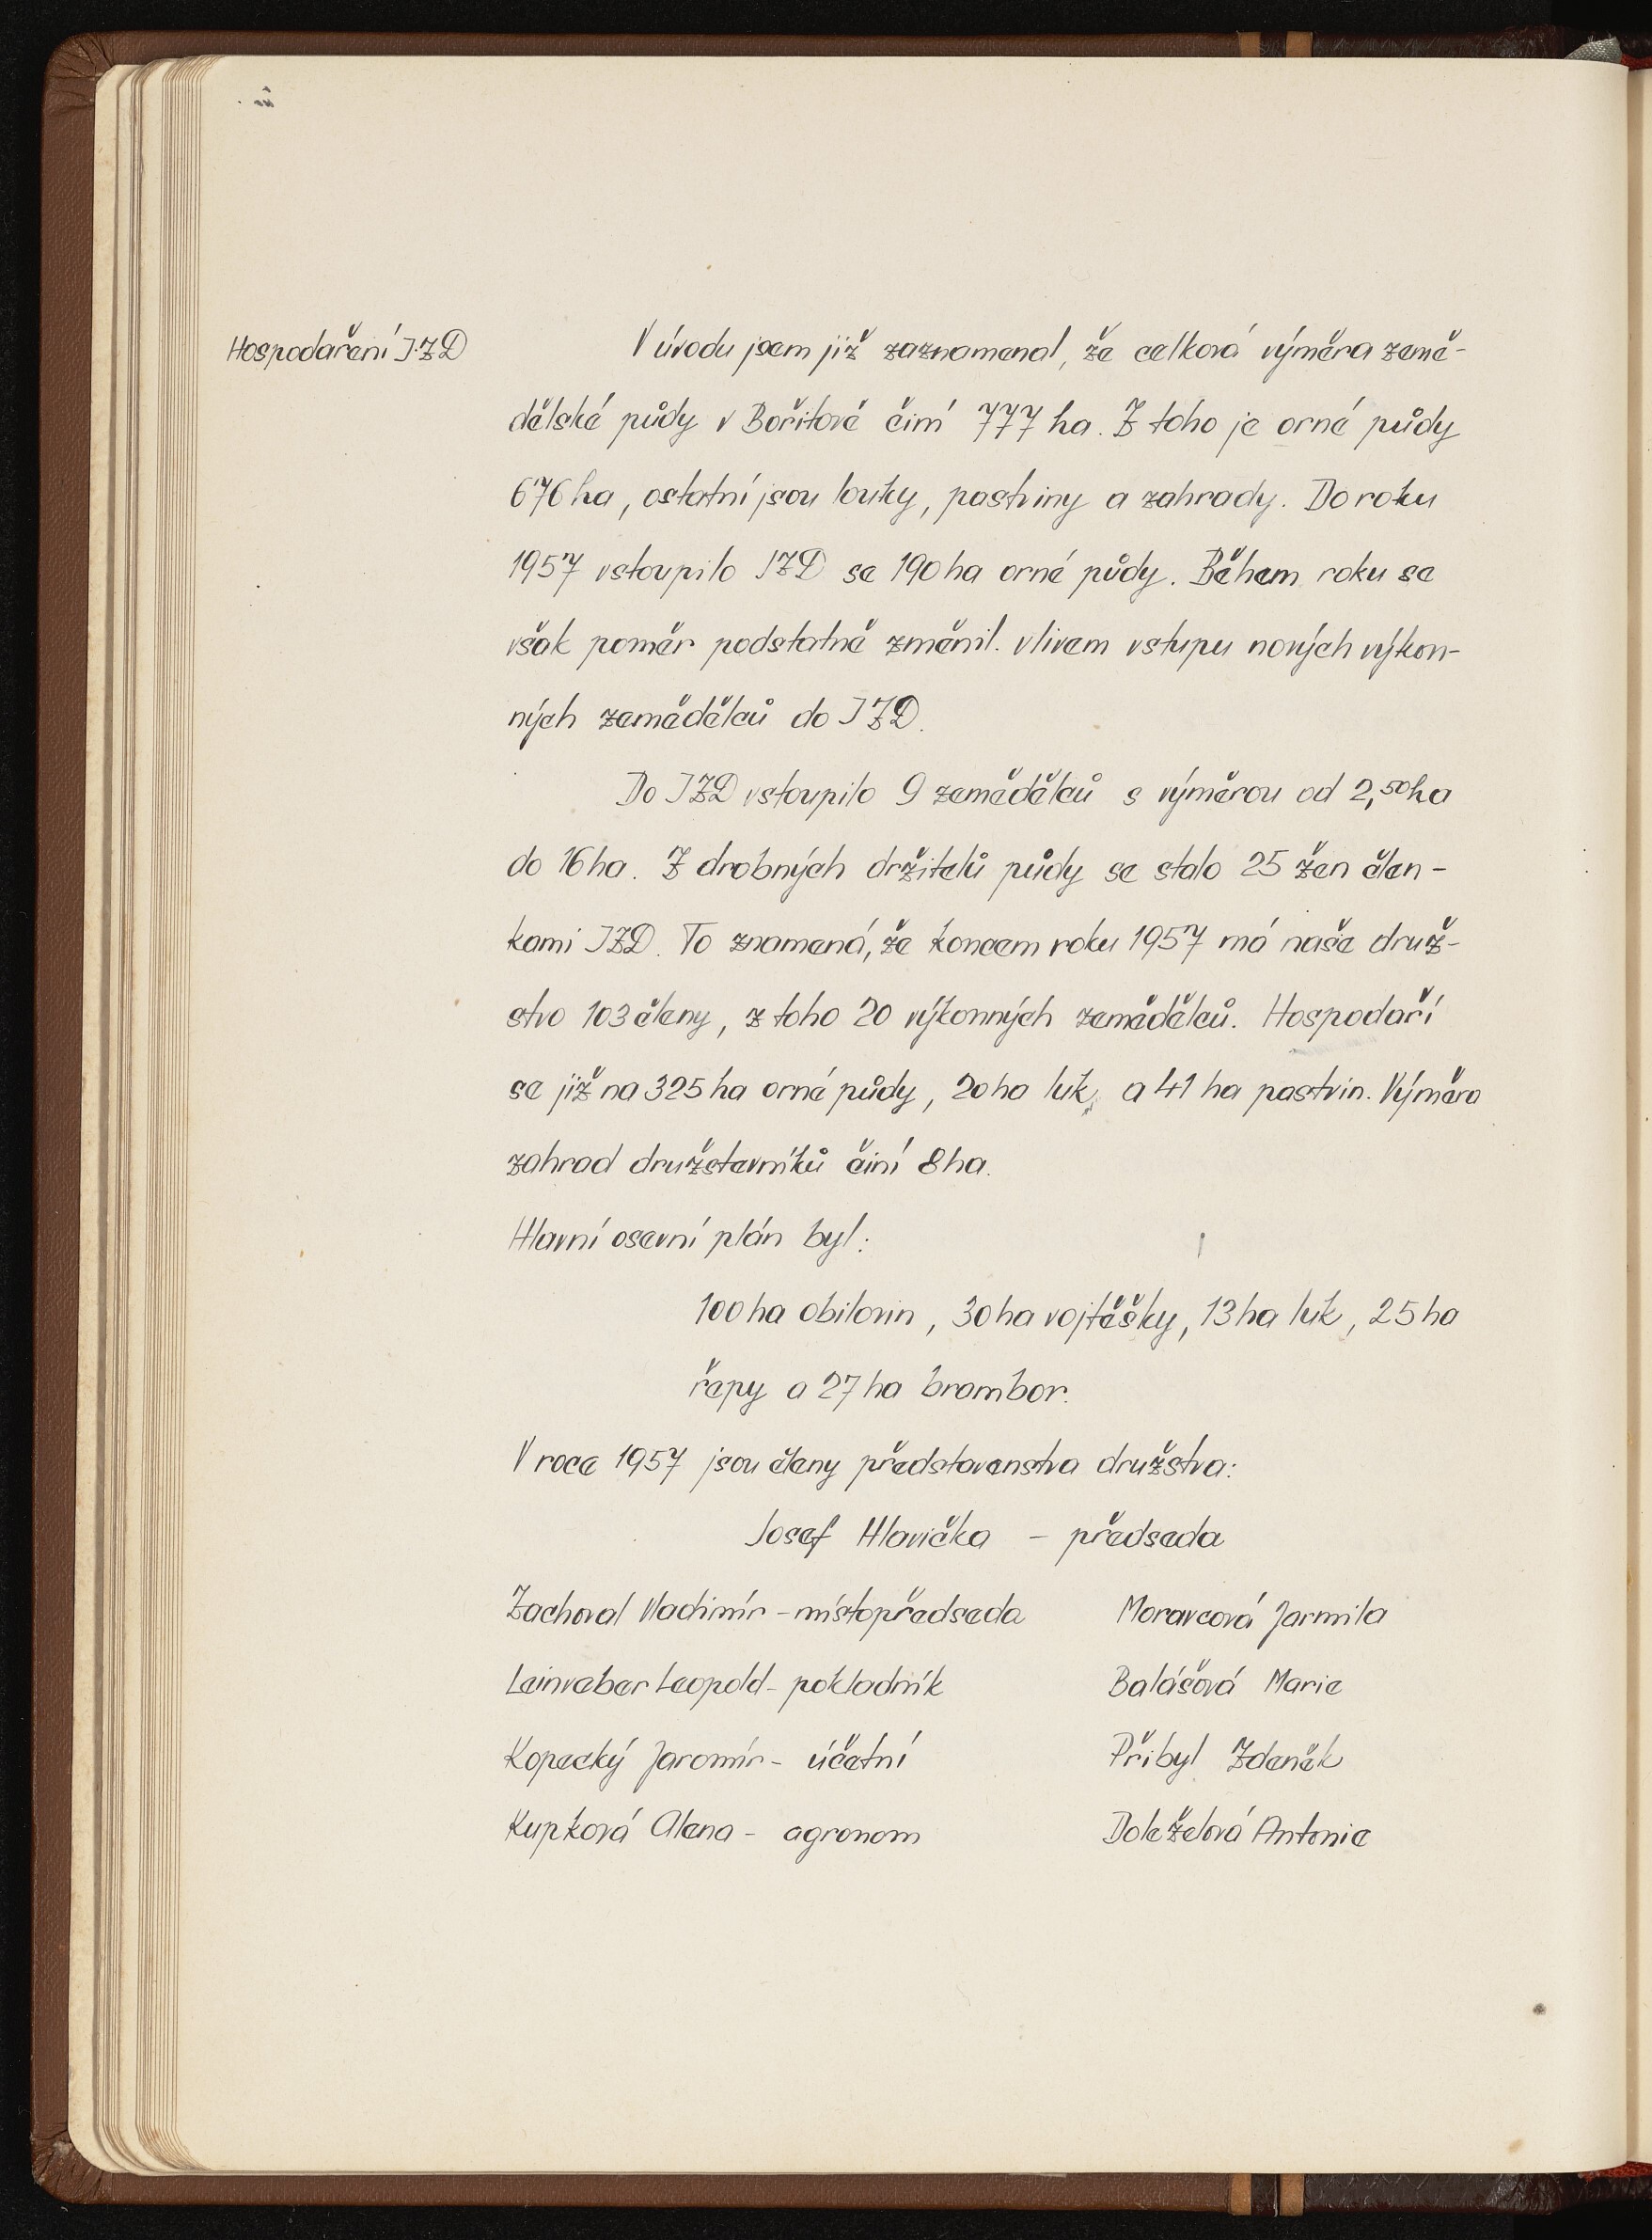 Hospodaření JZD
V úvodu jsem již zaznamenal, že celková výměra země-
dělské půdy v Bořitově činí 777 ha. Z toho je orné půdy
676 ha, ostatní jsou louky, pastviny a zahrady. Do roku
1957 vstoupilo JZD se 190 ha orné půdy. Během roku se
však poměr podstatně změnil. vlivem vstupu nových výkon-
ných zemědělců do JZD.
Do JZD vstoupilo 9 zemědělců s výměrou od 2,50 ha
do 16 ha. Z drobných držitelů půdy se stalo 25 žen člen-
kami JZD. To znamená, že koncem roku 1957 má naše druž-
stvo 103 členy, z toho 20 výkonných zemědělců. Hospodaří
se již na 325 ha orné půdy, 20 ha luk, a 41 ha pastvin. Výměra
zahrad družstevníků činí 8 ha.
Hlavní osevní plán byl:
100 ha obilovin, 30 ha vojtěšky, 13 ha luk, 25 ha
řepy a 27 ha brambor.
V roce 1957 jsou členy představenstva družstva:
Josef Hlavička - předseda
Zachoval Vladimír - místopředseda Moravcová Jarmila
Leinveber Leopold - pokladník Balášová Marie
Kopecký Jaromír - účetní Přibyl Zdeněk
Kupková Alena - agronom Doleželová Antonie